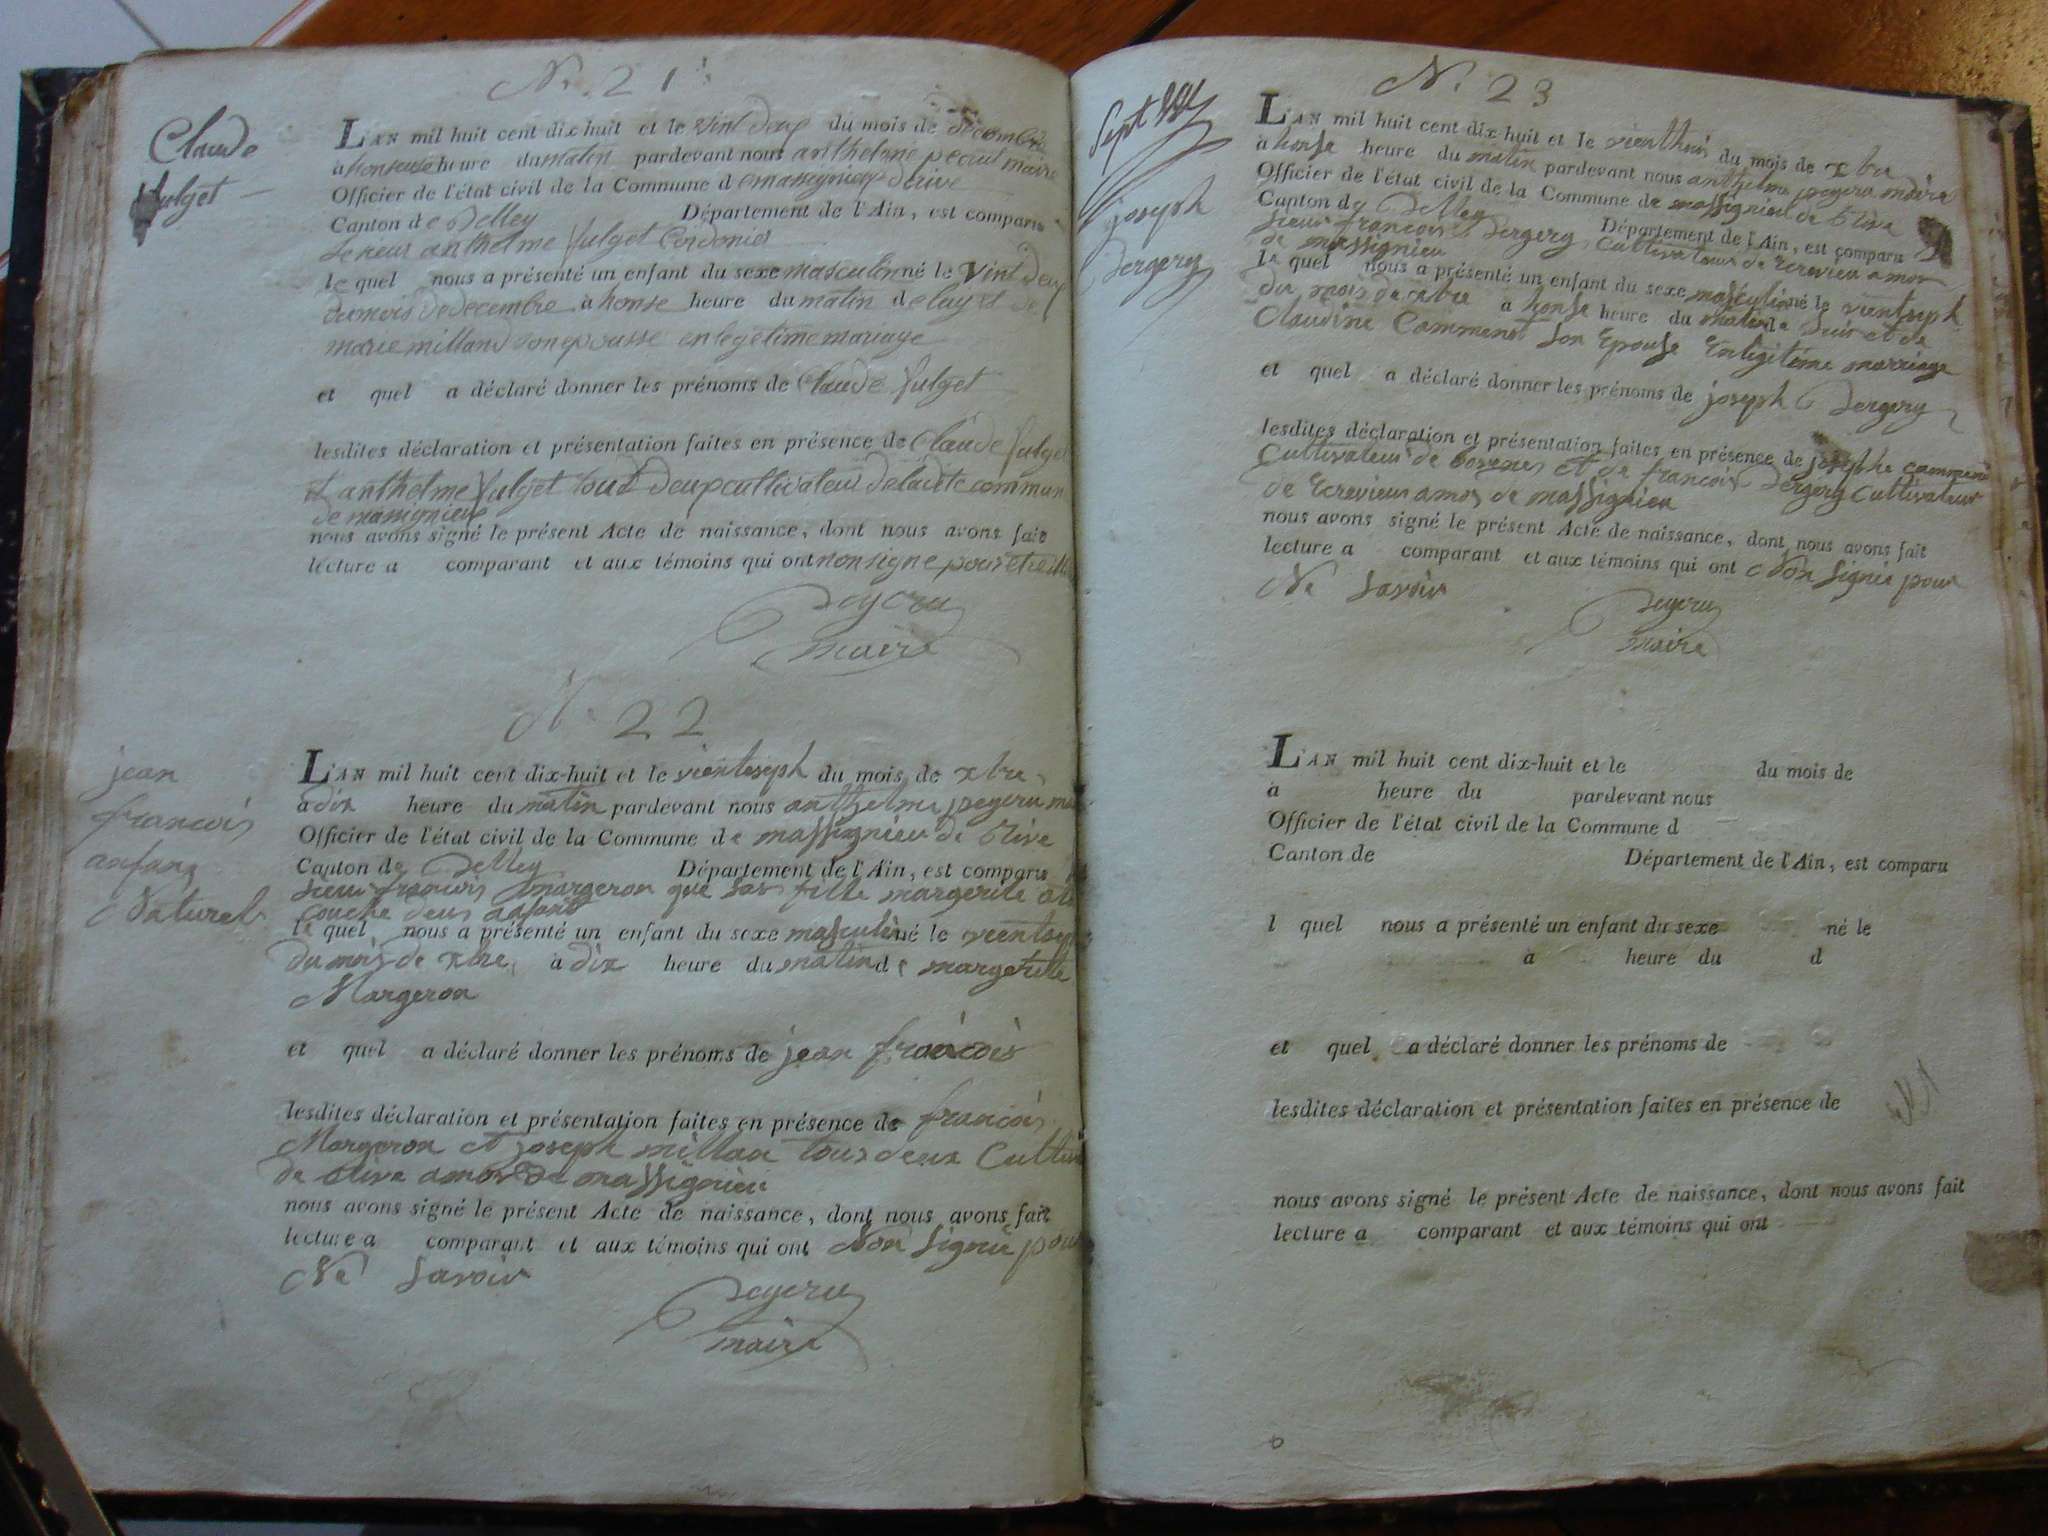 N. 21
Claude
fulget
LAN mil huit cent dix huit et le vint deup du mois de decembre
a honse heure du matin pardevant nous anthelme maire
Officier de l'état civil de la Commune de massignieu derive
Canton de Belley Département de l'Ain, est comparu
le sieur anthelme fulget Cordonier
le quel nous a présenté un enfant du sexe masculin né le vint deup
du mois de decembre à honse heure du matin de luy et de
marie milland son epousse en legetime mariage
et quel a déclaré donner les prénoms de Claude fulget
lesdites déclaration et présentation faites en présence de Claude fulget
et anthelme fulget tout deup cultivateur de ladite commun
de massignieu
nous avons signé le présent Acte de naissance, dont nous avons fait
lecture a comparant et aux témoins qui ont non signe pour
peyeru
maire
N. 22
jean
francois
anfans
Naturel
LAN mil huit cent dix-huit et le vienteseph du mois de xbre
a dix heure du matin pardevant nous anthelme peyeru
Officier de l'état civil de la Commune de massignieu de Rive
Canton de Belley Département de l'Ain, est comparu
sieur francois margeron que sas fille margerite
couche deus anfans
le quel nous a présenté un enfant du sexe masculin né le
du mois de xbre, à dix heure du matin de margerite
Margeron
et quel a déclaré donner les prénoms de jean francois
lesdites déclaration et présentation faites en présence de francois
Margeron et joseph millan tous deux
de Rive amos de massignieu
nous avons signé le présent Acte de naissance, dont nous avons fait
lecture a comparant et aux témoins qui ont Non signié pour
Ne savoir
peyeru
maire
N. 23
joseph
Dergery
LAN mil huit cent dix-huit et le vienthuis du mois de xbre
a honse heure du matin pardevant nous anthelme peyeru maire
Officier de l'état civil de la Commune de massignieu de Rive
Canton de Belley Département de l'Ain, est comparu
sieur francois Dergery Cultivateur de Ecrevieu amos
de massignieu
le quel nous a présenté un enfant du sexe masculin né le vientseph
du mois de xbre a honse heure du matin de Luis et de
Claudine Comment son Epouse En legitime marriage
et quel a déclaré donner les prénoms de joseph Dergery
lesdites déclaration et présentation faites en présence de josephe
Cultivateur de et de francois Dergery Cultivateur
de Ecrevieu amos de massignieu
nous avons signé le présent Acte de naissance, dont nous avons fait
lecture a comparant et aux témoins qui ont Non signié pour
Ne savoir
peyeru
maire
LAN mil huit cent dix-huit et le du mois de
a heure du pardevant nous
Officier de l'état civil de la Commune d
Canton de Département de l'Ain, est comparu
l quel nous a présenté un enfant du sexe né le
à heure du d
et quel a déclaré donner les prénoms de
lesdites déclaration et présentation faites en présence de
nous avons signé le présent Acte de naissance, dont nous avons fait
lecture a comparant et aux témoins qui ont